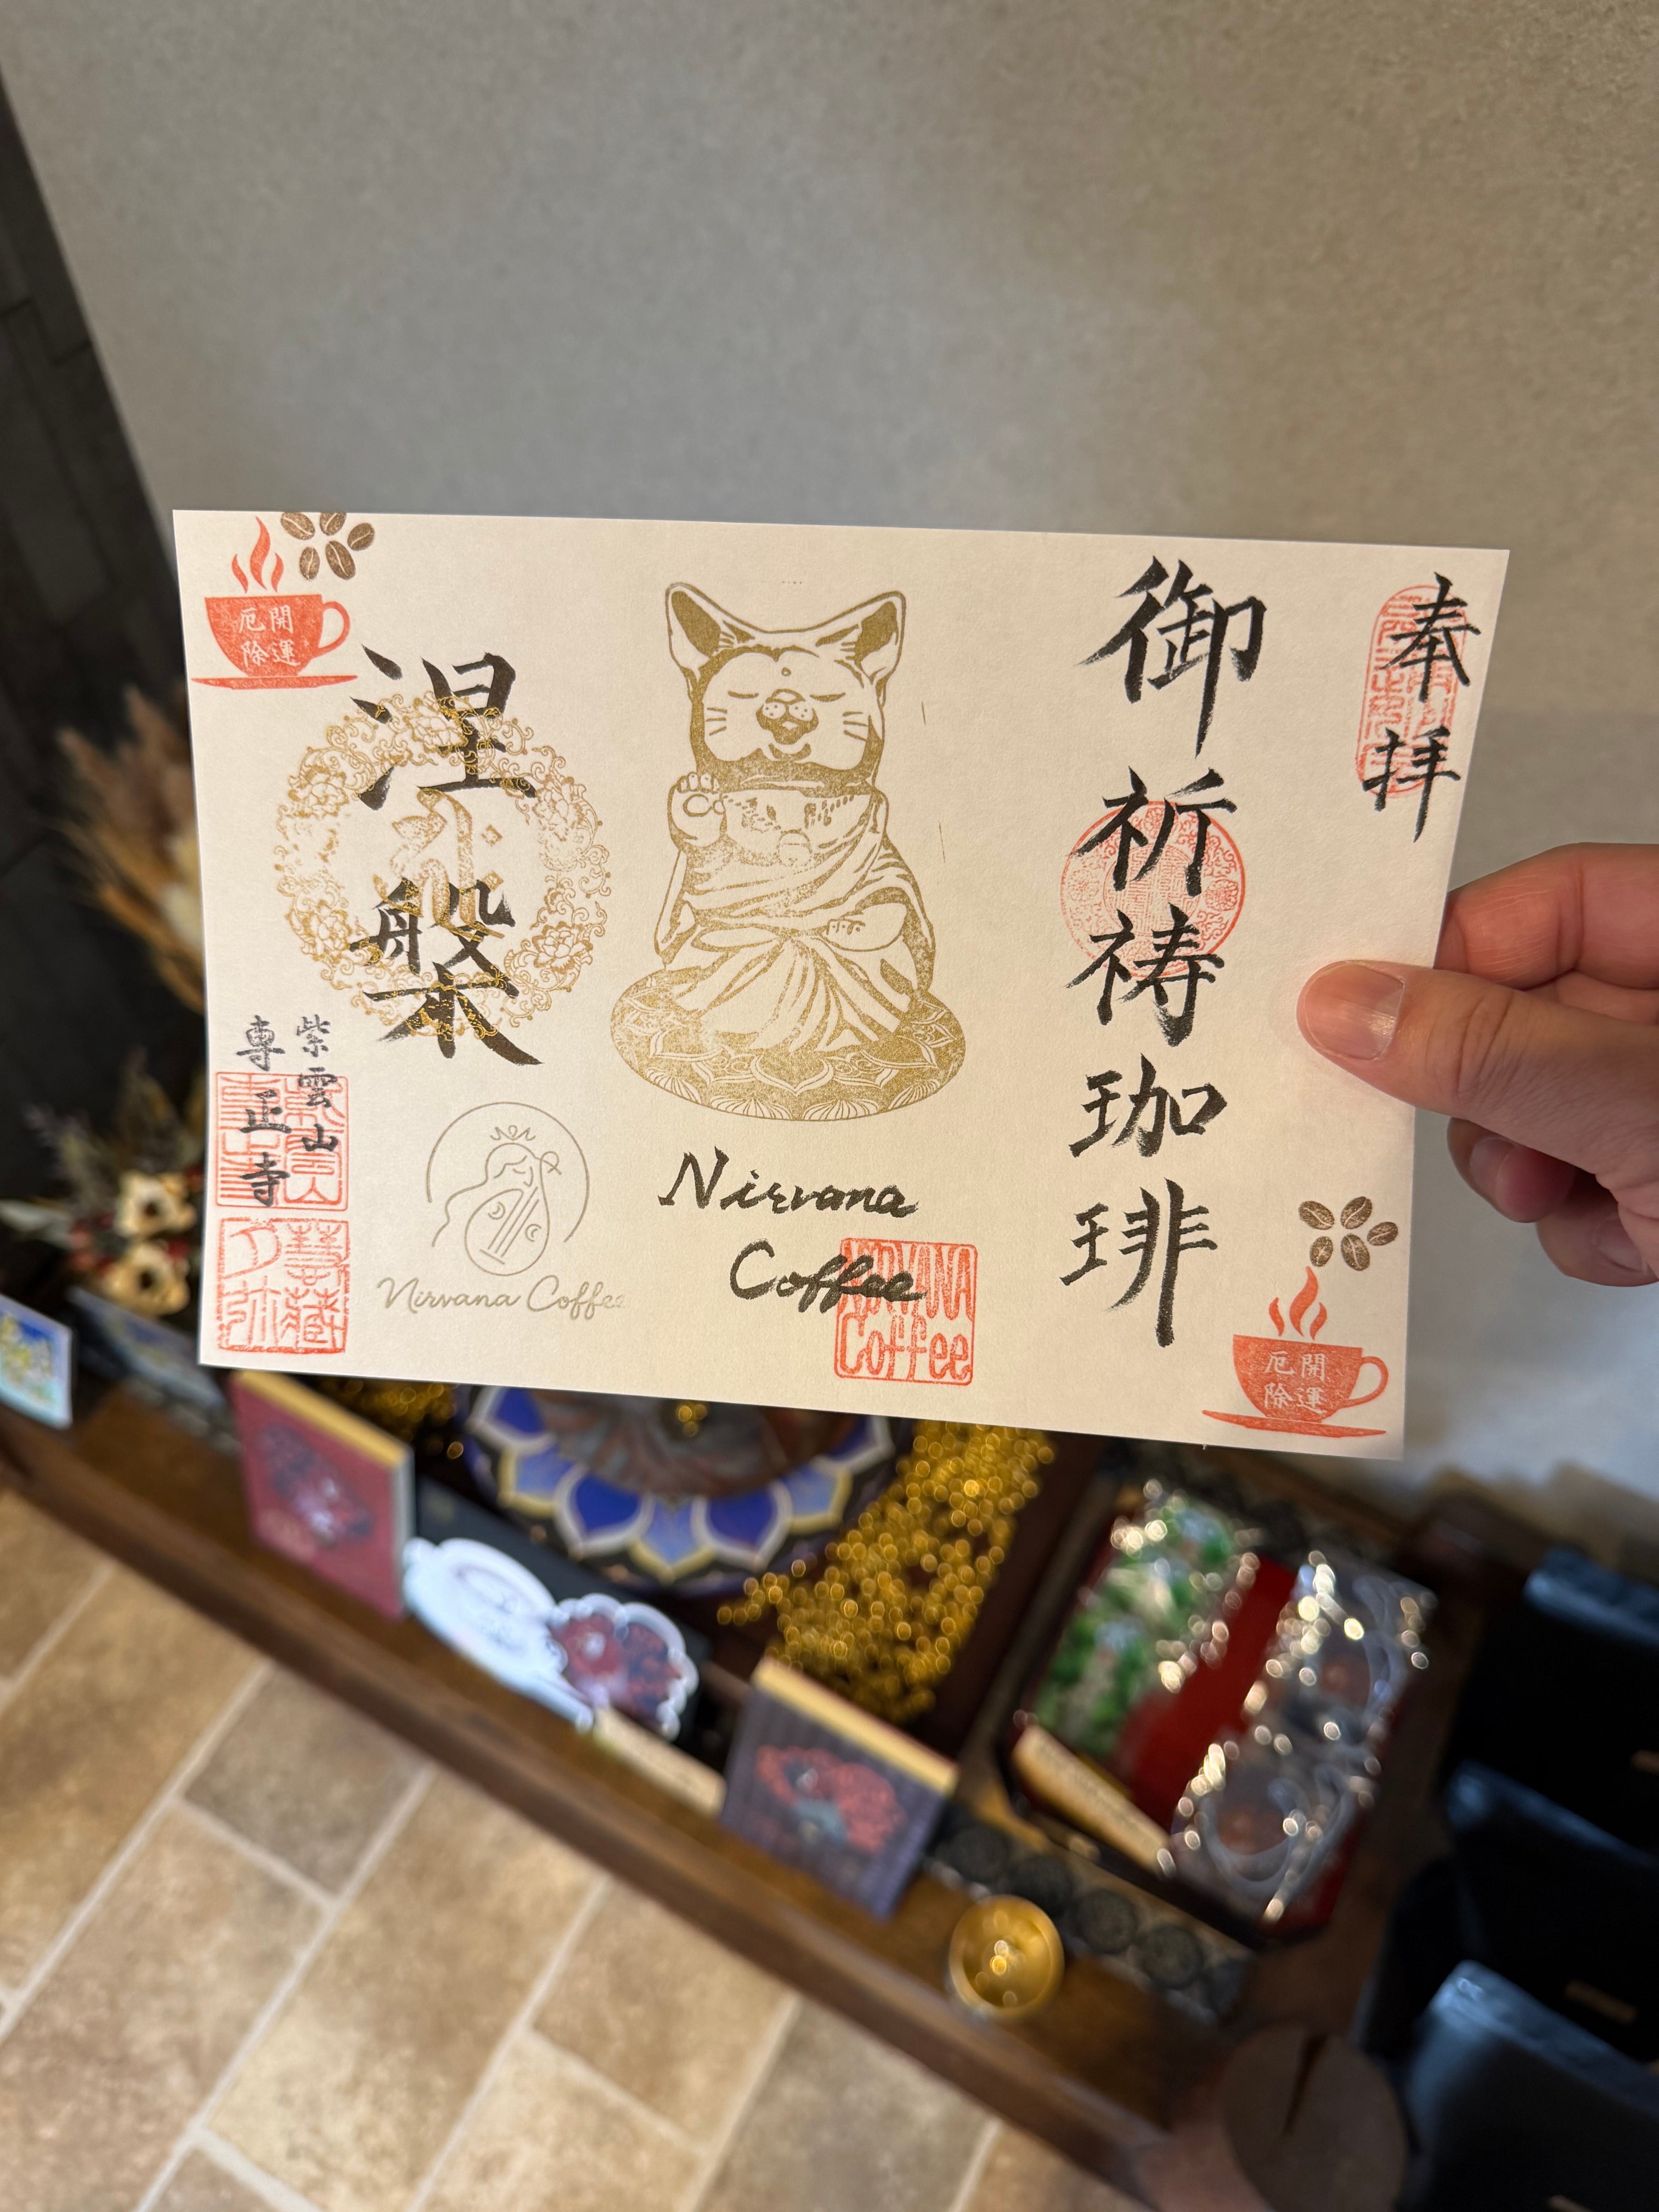 奉拝
御祈祷珈琲
開運
厄除
Nirvana
Coffee
NIRVANA
Coffee
開運
厄除
涅槃
Nirvana Coffee
紫雲山
専正寺